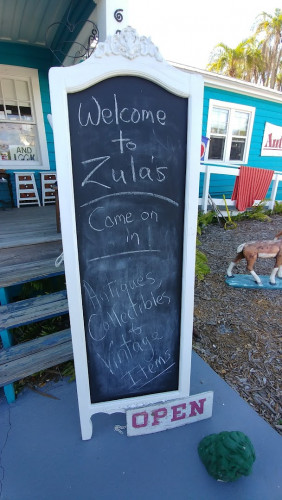 Welcome
to
Zula's
Come on
in!
Antiques,
Collectibles
&
Vintage
Items
OPEN
AND
LOOK
Ant
6